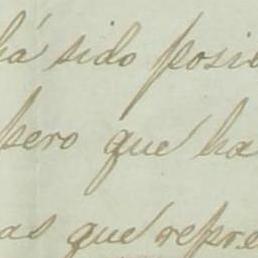 há sido posi
pero que ha
as que repre